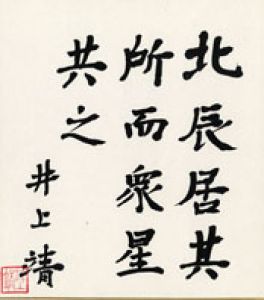 北辰居其
所而眾星
共之
井上靖